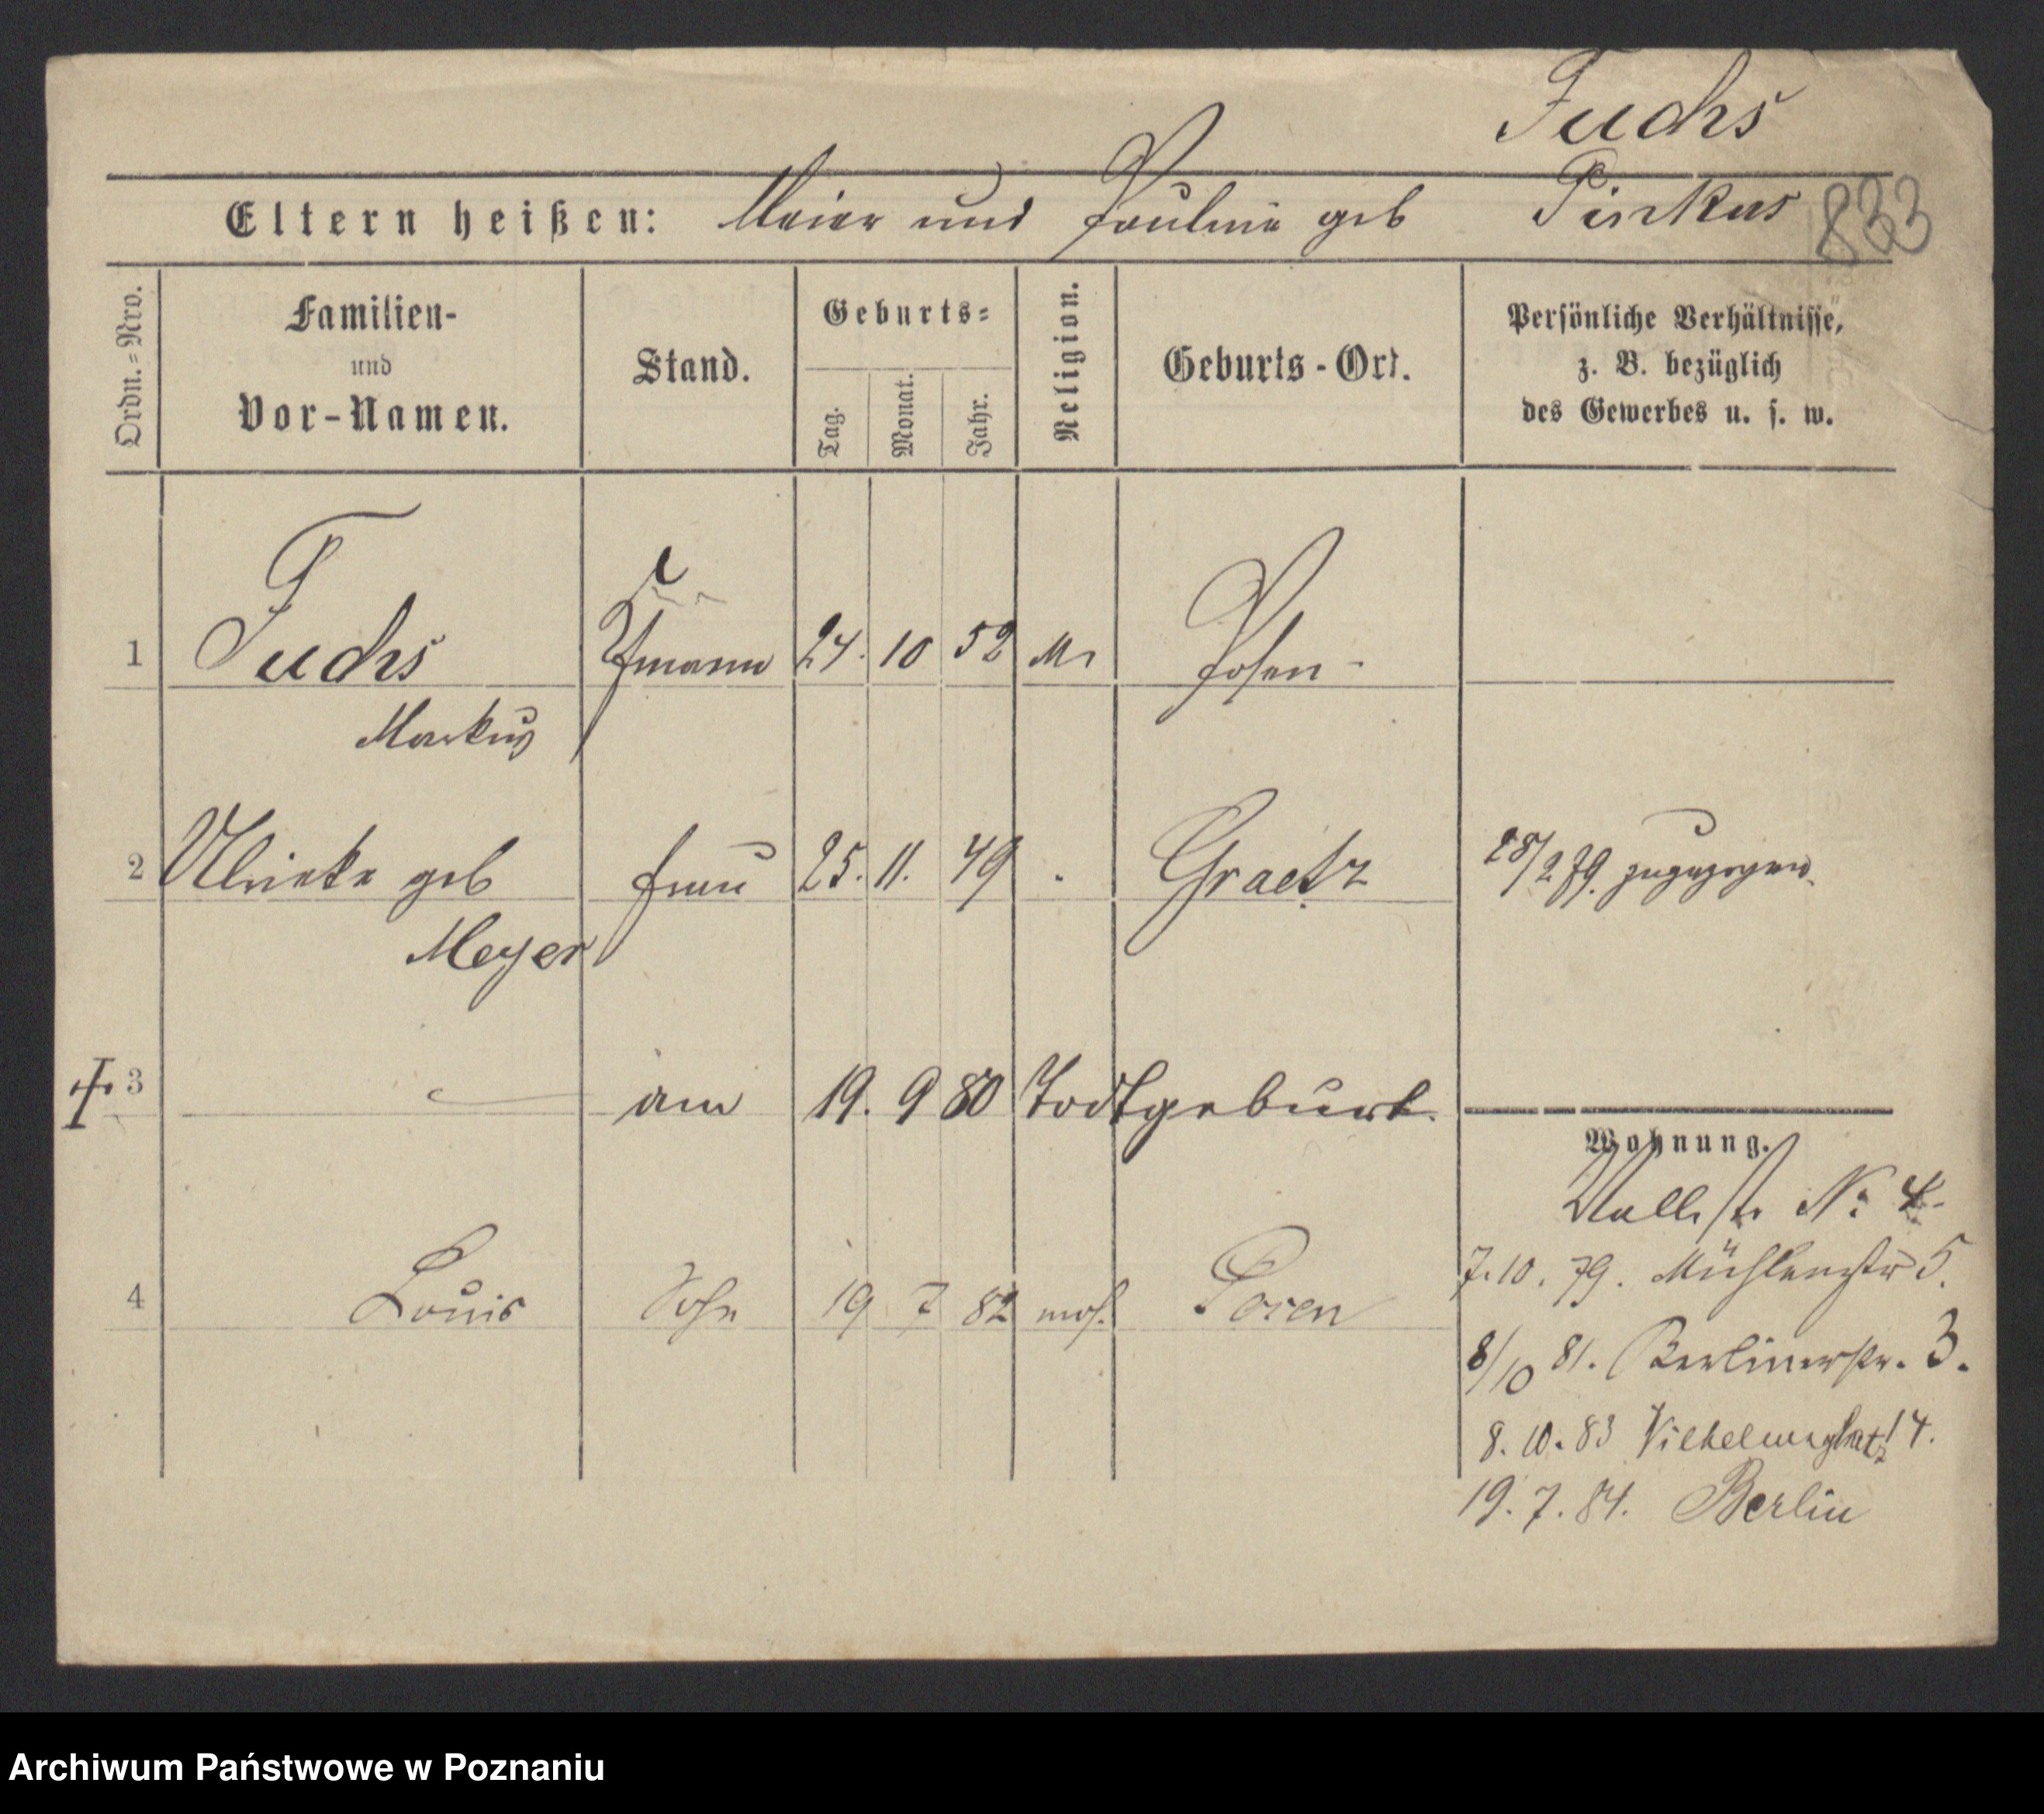 Fuchs
Eltern heißen: Meier und Pauline geb Pinkus 833
Ordn.=Nro. Familien- und Vor-Namen. Stand. Geburts= Tag. Monat. Jahr. Religion. Geburts-Ort. Persönliche Verhältnisse, z. B. bezüglich des Gewerbes u. s. w.
1 Fuchs Kfmann 24. 10 52 Ms Posen
Markus
2 Ulrieke geb Frau 25. 11. 49 Graetz 28/2 79. zugezogen.
Meyer
3 am 19. 9 80 Todtgeburt.
Wohnung.
Wallstr No 4
4 Louis Sohn 19 7 82 mos. Posen
7.10.79. Mühlenstr 5.
8/10 81. Berlinerstr. 3.
8.10.83 Wilhelmsplatz 14.
19.7.84. Berlin
Archiwum Państwowe w Poznaniu